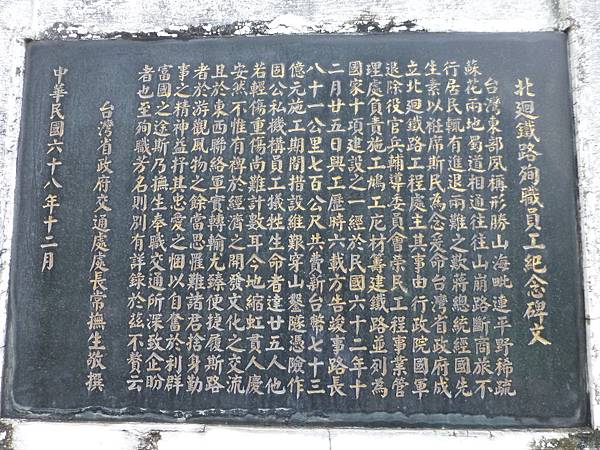 北迴鐵路殉職員工紀念碑文
台灣東部夙稱形勝山海毗連平野稀疏
蘇花兩地蜀道相通往往山崩路斷商旅不
行居民輒有進退兩難之歎蔣總統經國先
生素以袵席斯民為念爰命台灣省政府成
立北迴鐵路工程處主其事由行政院國軍
退除役官兵輔導委員會榮民工程事業管
理處負責施工鳩工庀材籌建鐵路並列為
國家十項建設之一經於民國六十二年十
二月廿五日興工歷時六載方告竣事路長
八十一公里七百公尺共費新台幣七十三
億元施工期間措設維艱穿山鑿隧憑險作
因公私機構員工犧牲生命者達廿五人他
若輕傷重傷尚難計數耳今地縮虹貫人慶
安然不惟有裨於經濟之開發文化之交流
且於東西聯絡軍實轉輸尤臻便捷履斯路
者於游觀風物之餘當思罹難諸君捨身勤
事之精神並抒其忠愛之悃以自奮於利群
富國之途斯乃撫生奉職交通所深致企盼
者也至殉職芳名則別有詳錄於茲不贅云
台灣省政府交通處處長常撫生敬撰
中華民國六十八年十二月